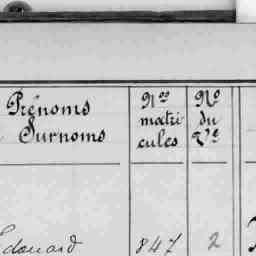 Prénoms
Surnoms
Nos
matri
cules
No
du
Edouard 847 2